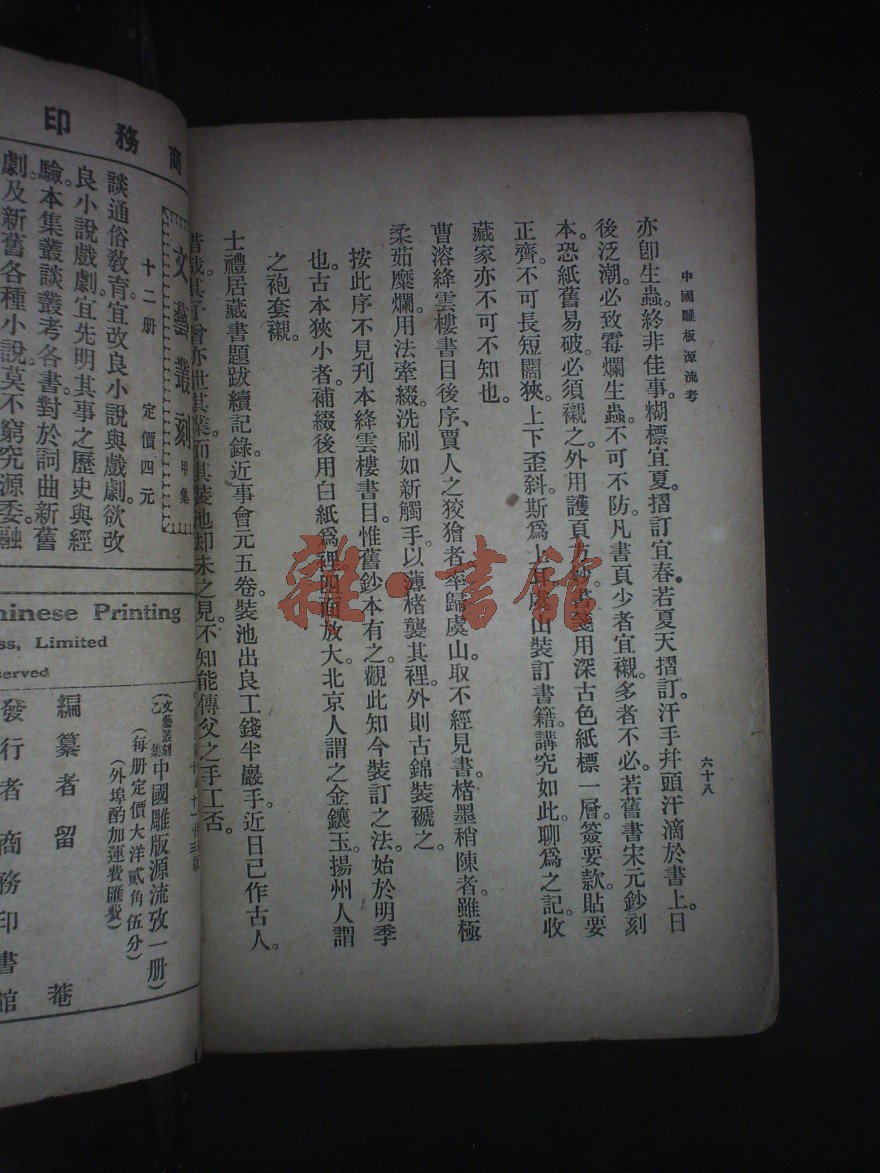 中國雕板源流考
六十八
亦卽生蟲。終非佳事。糊標宜夏。摺訂宜春。若夏天摺訂。汗手幷頭汗滴於書上。日
後泛潮。必致霉爛生蟲。不可不防。凡書頁少者宜襯。多者不必。若舊書宋元鈔刻
本。恐紙舊易破。必須襯之。外用護頁方妙。書籤用深古色紙標一層。簽要款貼。要
正齊。不可長短闊狹。上下歪斜。斯爲上耳。虞山裝訂書籍。講究如此。聊爲之記。收
藏家亦不可不知也。
曹溶絳雲樓書目後序、賈人之狡獪者。率歸虞山。取不經見書。楮墨稍陳者。雖極
柔茹糜爛。用法牽綴。洗刷如新觸手。以薄楮襲其裡。外則古錦裝褫之。
按此序不見刋本絳雲樓書目。惟舊鈔本有之。觀此知今裝訂之法。始於明季
也。古本狹小者。補綴後用白紙爲裡。四面放大。北京人謂之金鑲玉。揚州人謂
之袍套襯。
士禮居藏書題跋續記錄。近事會元五卷。裝池出良工錢半巖手。近日已作古人。
昔哉。其子曾亦世其業。而其裝池却未之見。不知能傳父之手工否。
商務印
文藝叢刻 甲集
十二册 定價四元
談通俗敎育。宜改良小說與戲劇。欲改
良小說戲劇。宜先明其事之歷史與經
驗。本集叢談叢考各書。對於詞曲新舊
劇及新舊各種小說。莫不窮究源委。融
hinese Printing
ss, Limited
served
(文藝叢刻乙集)中國雕版源流攷一册)
(每册定價大洋貳角伍分)
(外埠酌加運費匯費)
編纂者 留菴
發行者 商務印書館
雜·書館